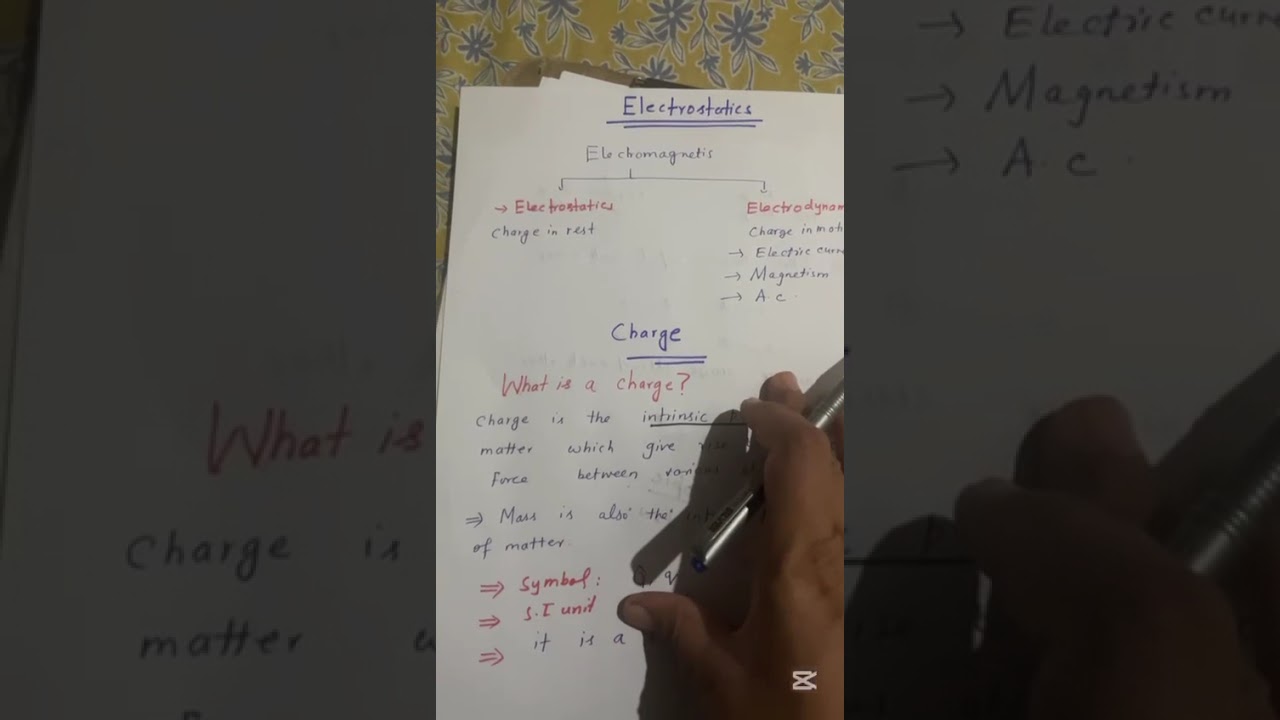 Electrostatics
Electromagnetis
→ Electrostatics
Charge in rest
Electrodynam
Charge in mot
→ Electric curr
→ Magnetism
→ A.c.
Charge
What is a charge?
Charge is the intrinsic p
matter which give rise
force between various
⇒ Mass is also the int
of matter.
⇒ Symbol: Q, q
⇒ S.I unit
⇒ it is a